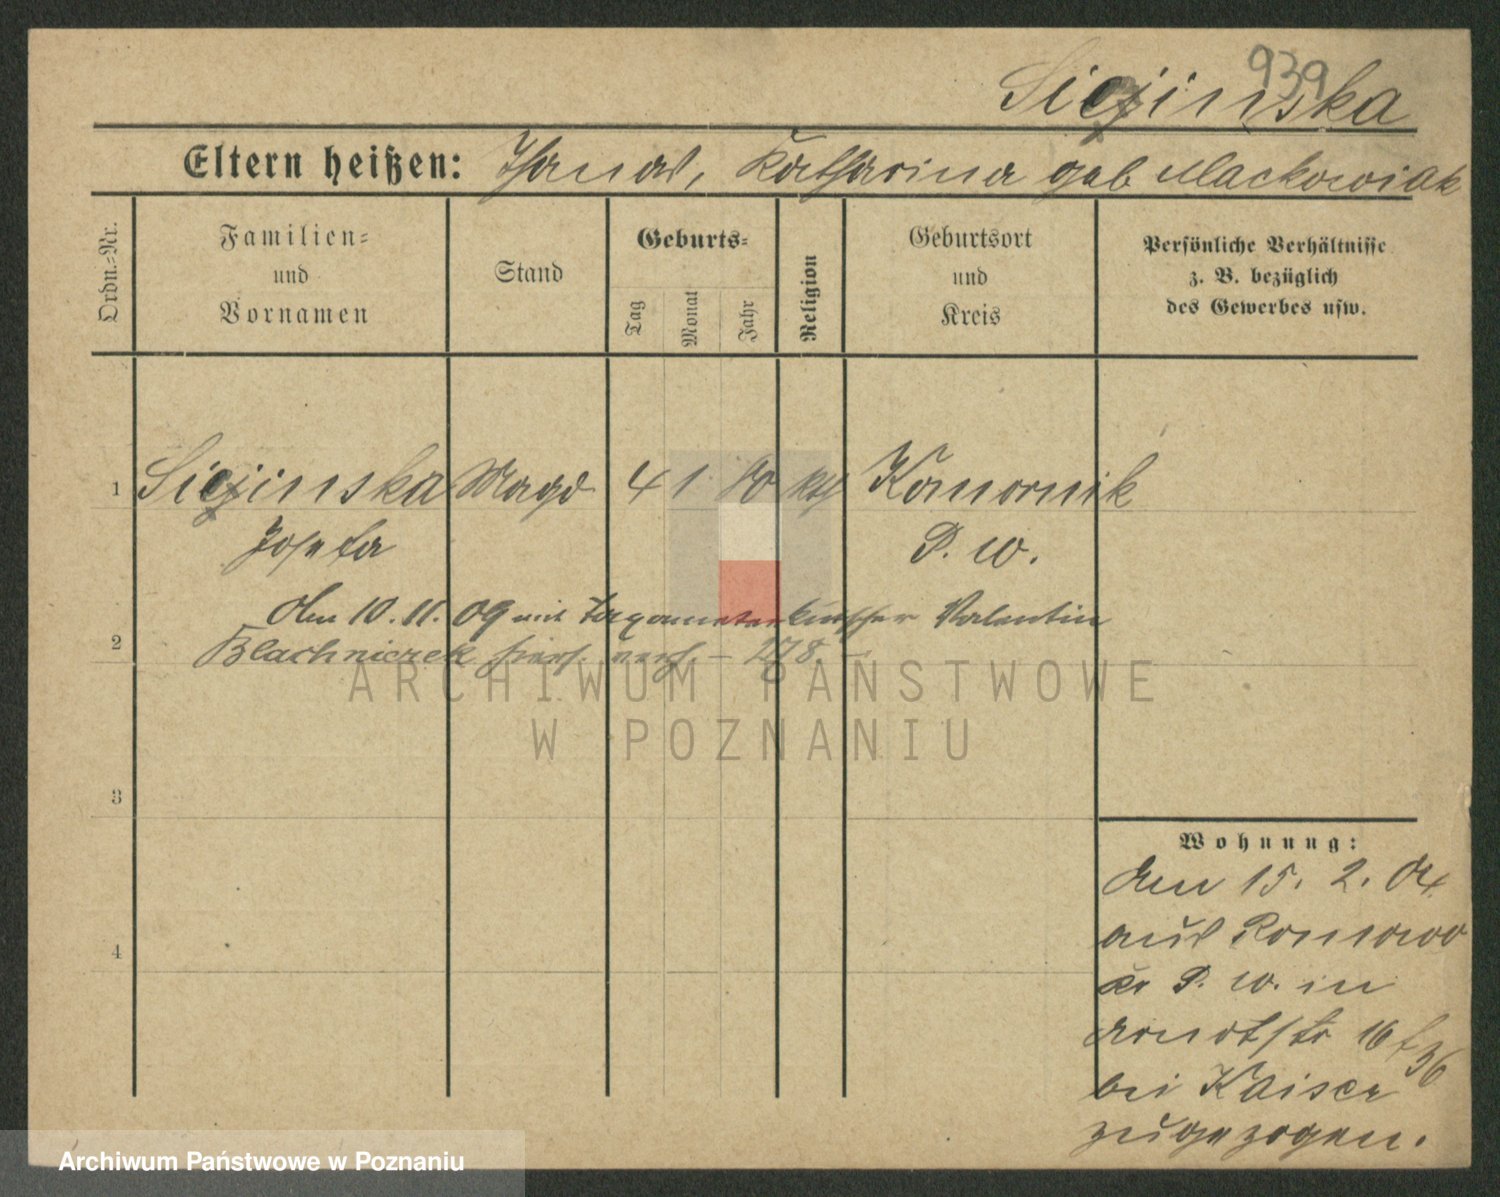 939
Siejinska
Eltern heißen: Ignatz, Katharina geb Mackowiak
Ordn.-Nr.
Familien-
und
Vornamen
Stand
Geburts-
Tag
Monat
Jahr
Religion
Geburtsort
und
Kreis
Persönliche Verhältnisse
z. B. bezüglich
des Gewerbes usw.
1 Siejinska Magd 4 1 80 kth Komornik
Josefa P. W.
Am 10. 11. 09 mit Taxameterkutscher Valentin
2 Blachniczek hiers. verh – 278 –
3
4
Wohnung:
den 15. 2. 04
aus
Kr P. W. in
Arndtstr 16
bei Kaiser
zugezogen.
ARCHIWUM PAŃSTWOWE
W POZNANIU
Archiwum Państwowe w Poznaniu